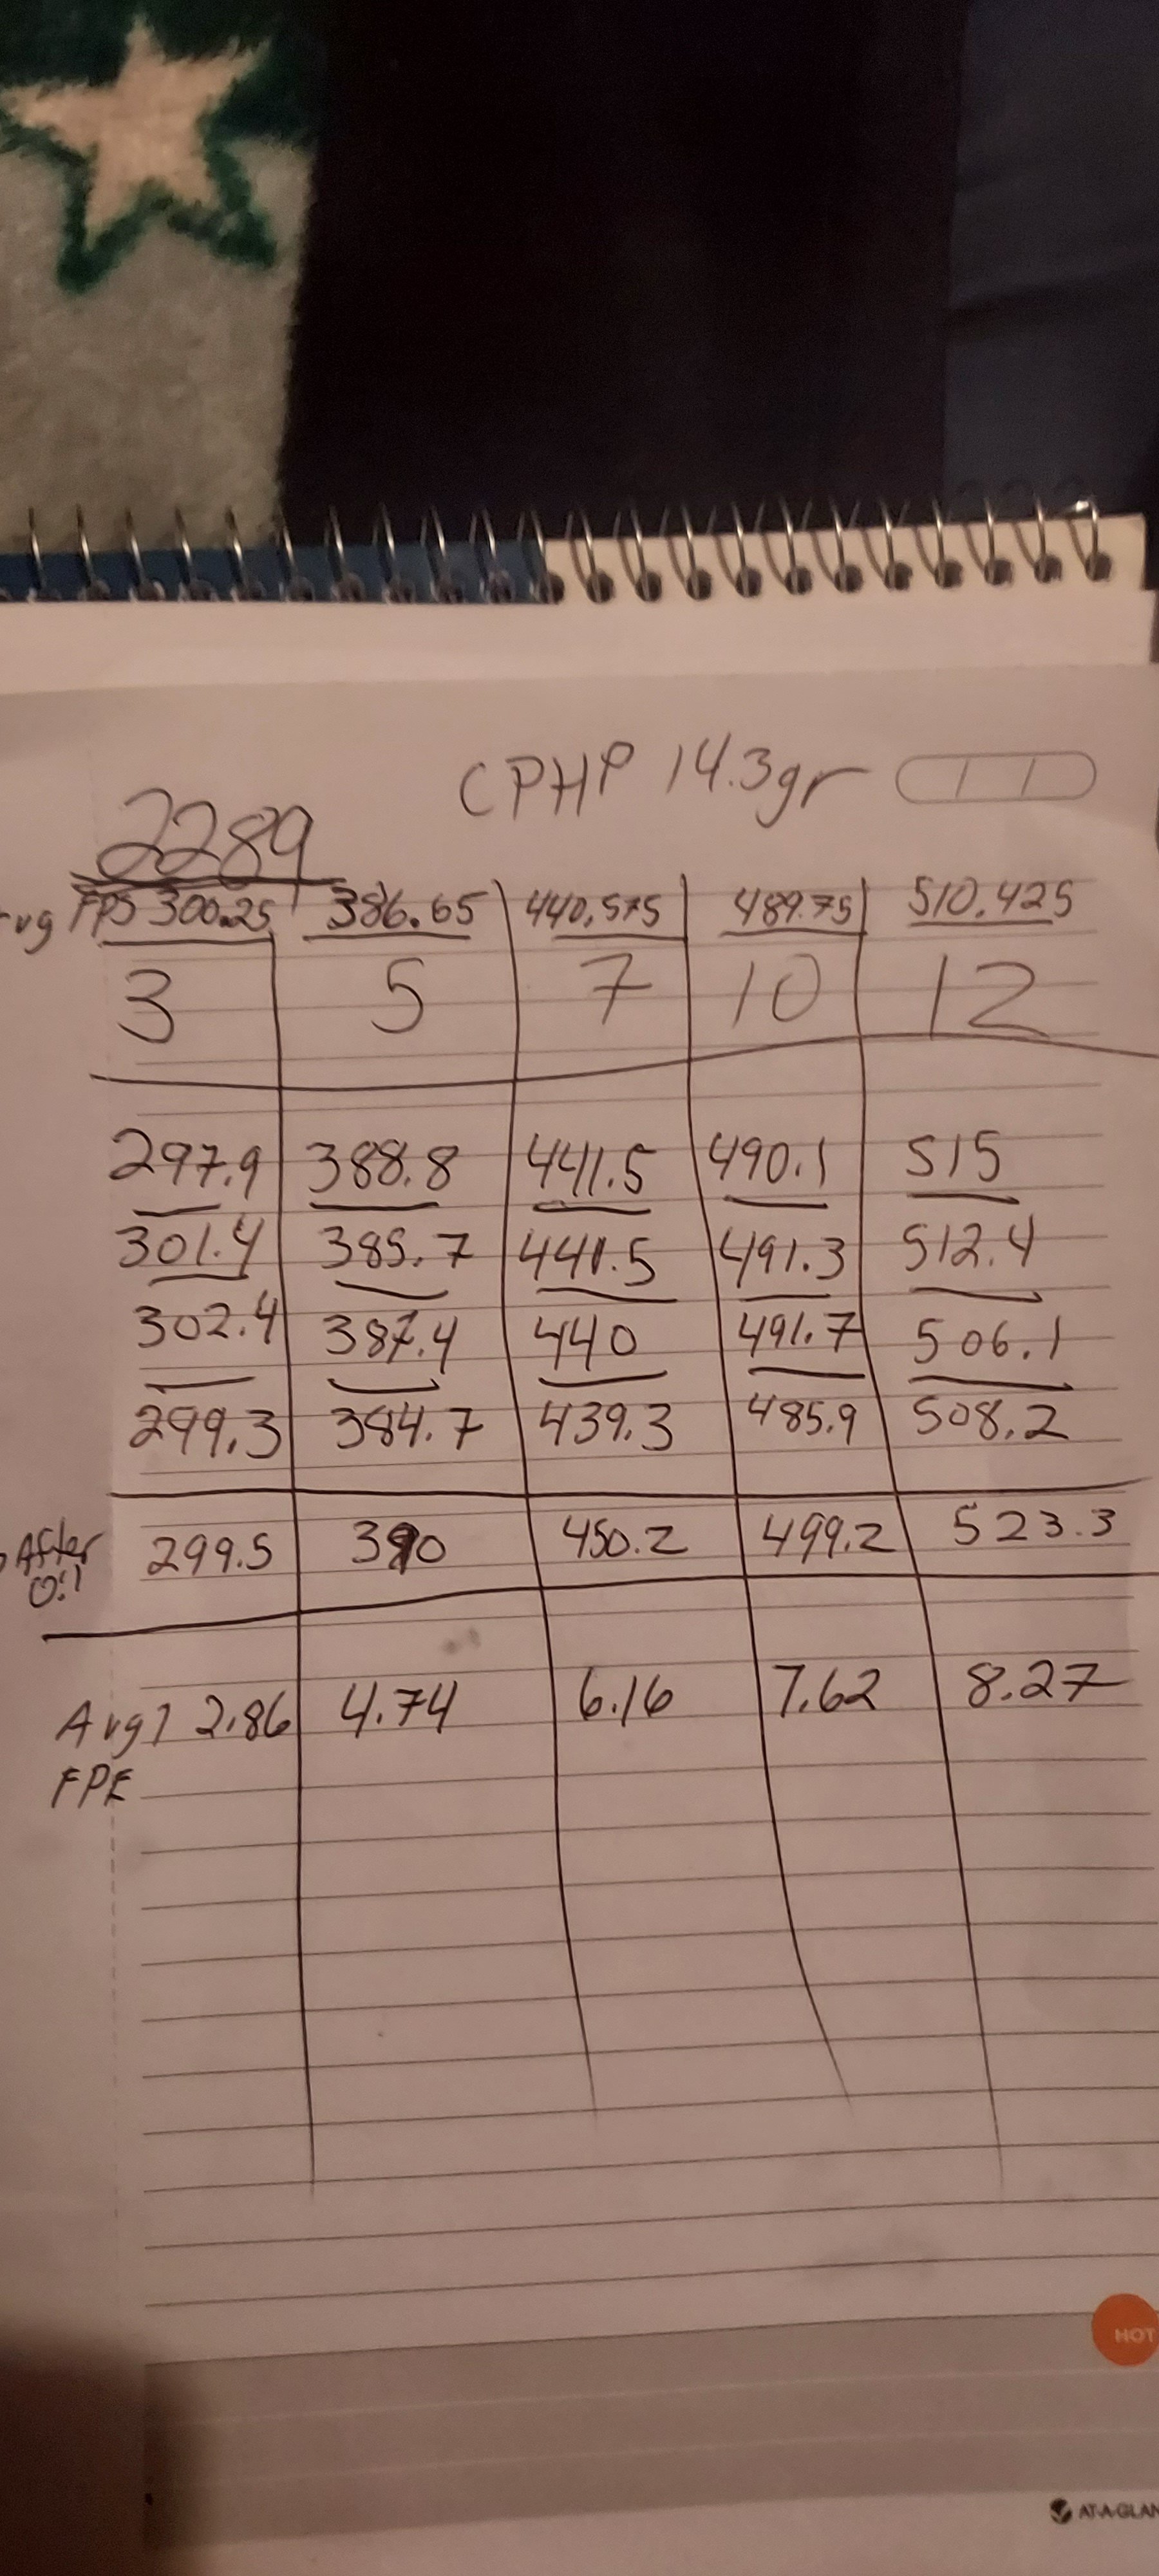 CPHP 14.3gr
2289
vg FPS 300.25 386.65 440.575 489.75 510.425
3 5 7 10 12
297.9 388.8 441.5 490.1 515
301.4 385.7 441.5 491.3 512.4
302.4 387.4 440 491.7 506.1
299.3 384.7 439.3 485.9 508.2
After 299.5 390 450.2 499.2 523.3
Oil
Avg 2.86 4.74 6.16 7.62 8.27
FPE
HOT
AT-A-GLAN